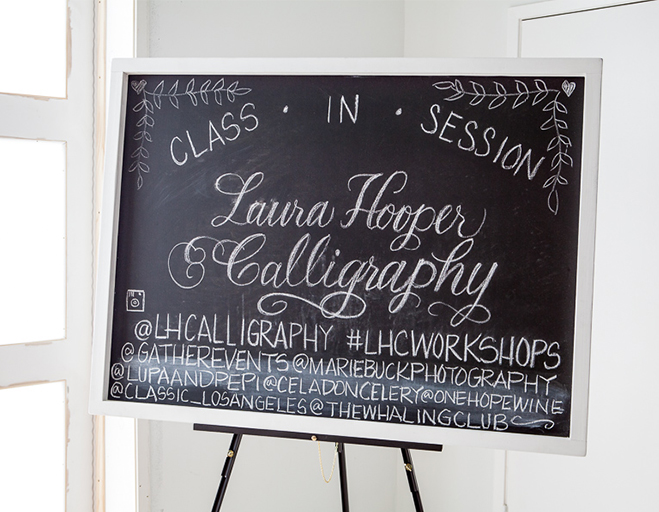 CLASS · IN · SESSION
Laura Hooper
Calligraphy
@LHCALLIGRAPHY #LHCWORKSHOPS
@GATHEREVENTS@MARIEBUCKPHOTOGRAPHY
@LUPAANDPEPI@CELADONCELERY@ONEHOPEWINE
@CLASSIC_LOSANGELES@THEWHALINGCLUB